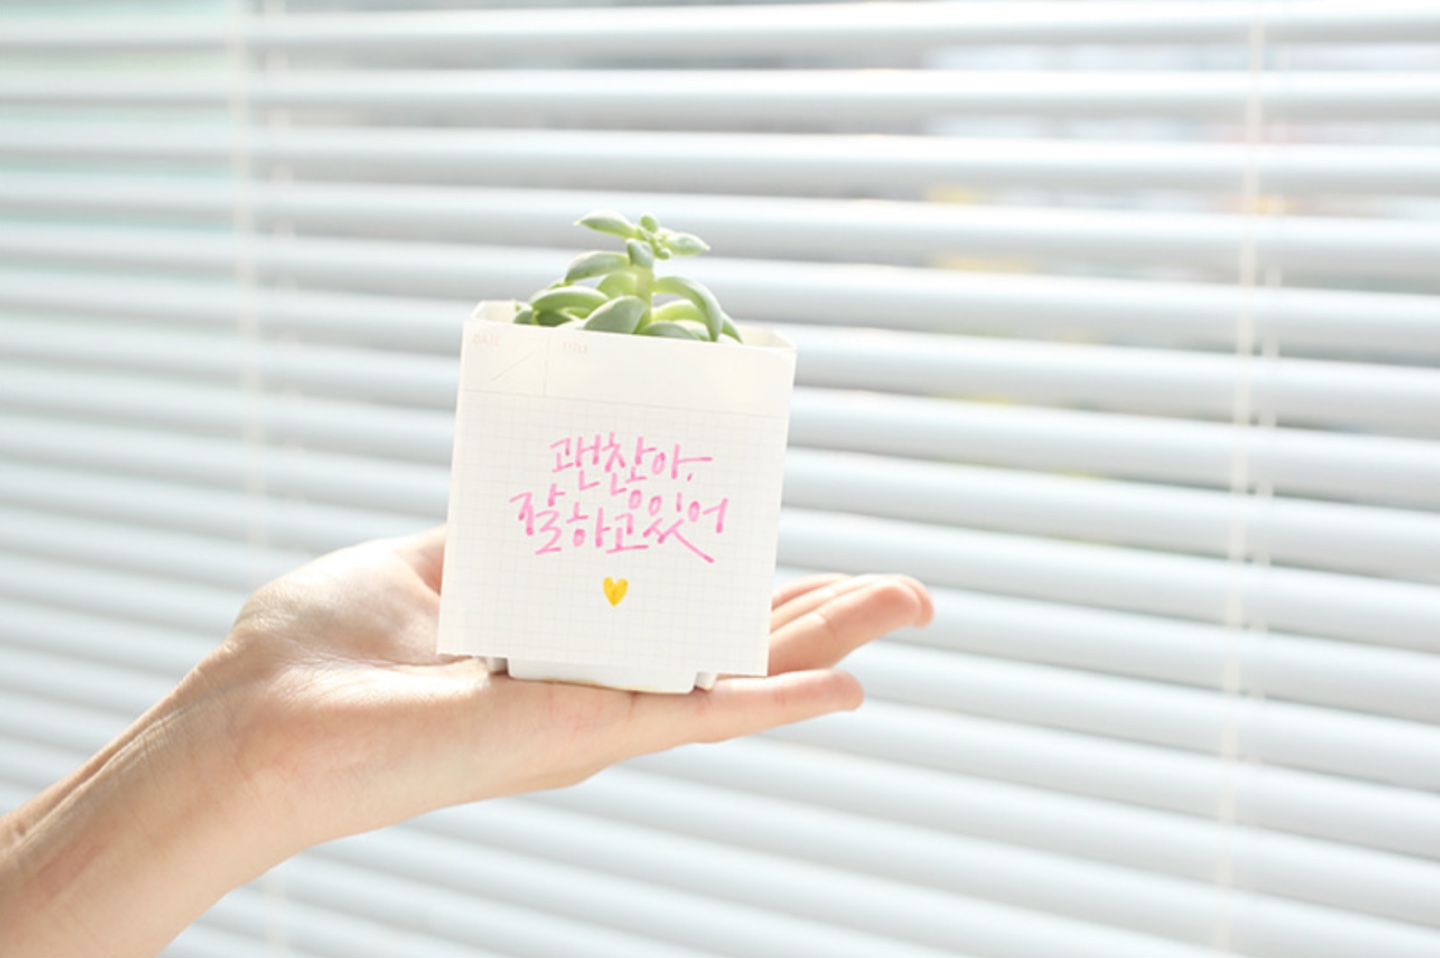 DATE TITLE
괜찮아,
잘하고있어